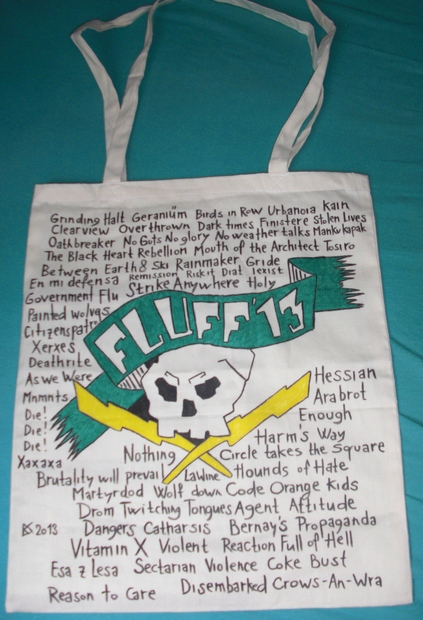 Grinding Halt Geranium Birds in Row Urbanoia Kain
Clearview Overthrown Dark times Finistere Stolen Lives
Oathbreaker No Guts No glory No weather talks Mankukapak
The Black Heart Rebellion Mouth of the Architect Tosiro
Between Earth & Ski Rainmaker Gride
En mi defensa Remission Risk it Diat 1exist
Government Flu Strike Anywhere Holy
Painted wolves
Citizens patr
FLUFF'13
Xerxes
Deathrite
As we Were
Hessian
Mnmnts
Arabrot
Die!
Enough
Die!
Harm's Way
Die!
Nothing Circle takes the Square
Xaxaxa
Brutality will prevail LaWine Hounds of Hate
Martyrdod Wolf down Code Orange Kids
Drom Twitching Tongues Agent Attitude
BS 2013 Dangers Catharsis Bernay's Propaganda
Vitamin X Violent Reaction Full of Hell
Esa z Lesa Sectarian Violence Coke Bust
Reason to Care Disembarked Crows-An-Wra